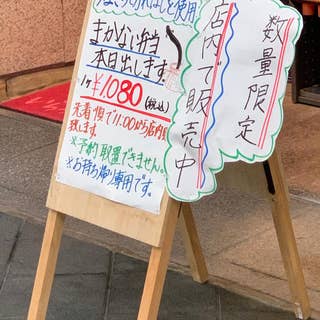 まかない弁当
本日出します。
1ヶ ¥1,080(税込)
先着順で11:00から店内販
致します。
※予約取置できません。
※お持ち帰り専用です。
数量限定
店内で販売中